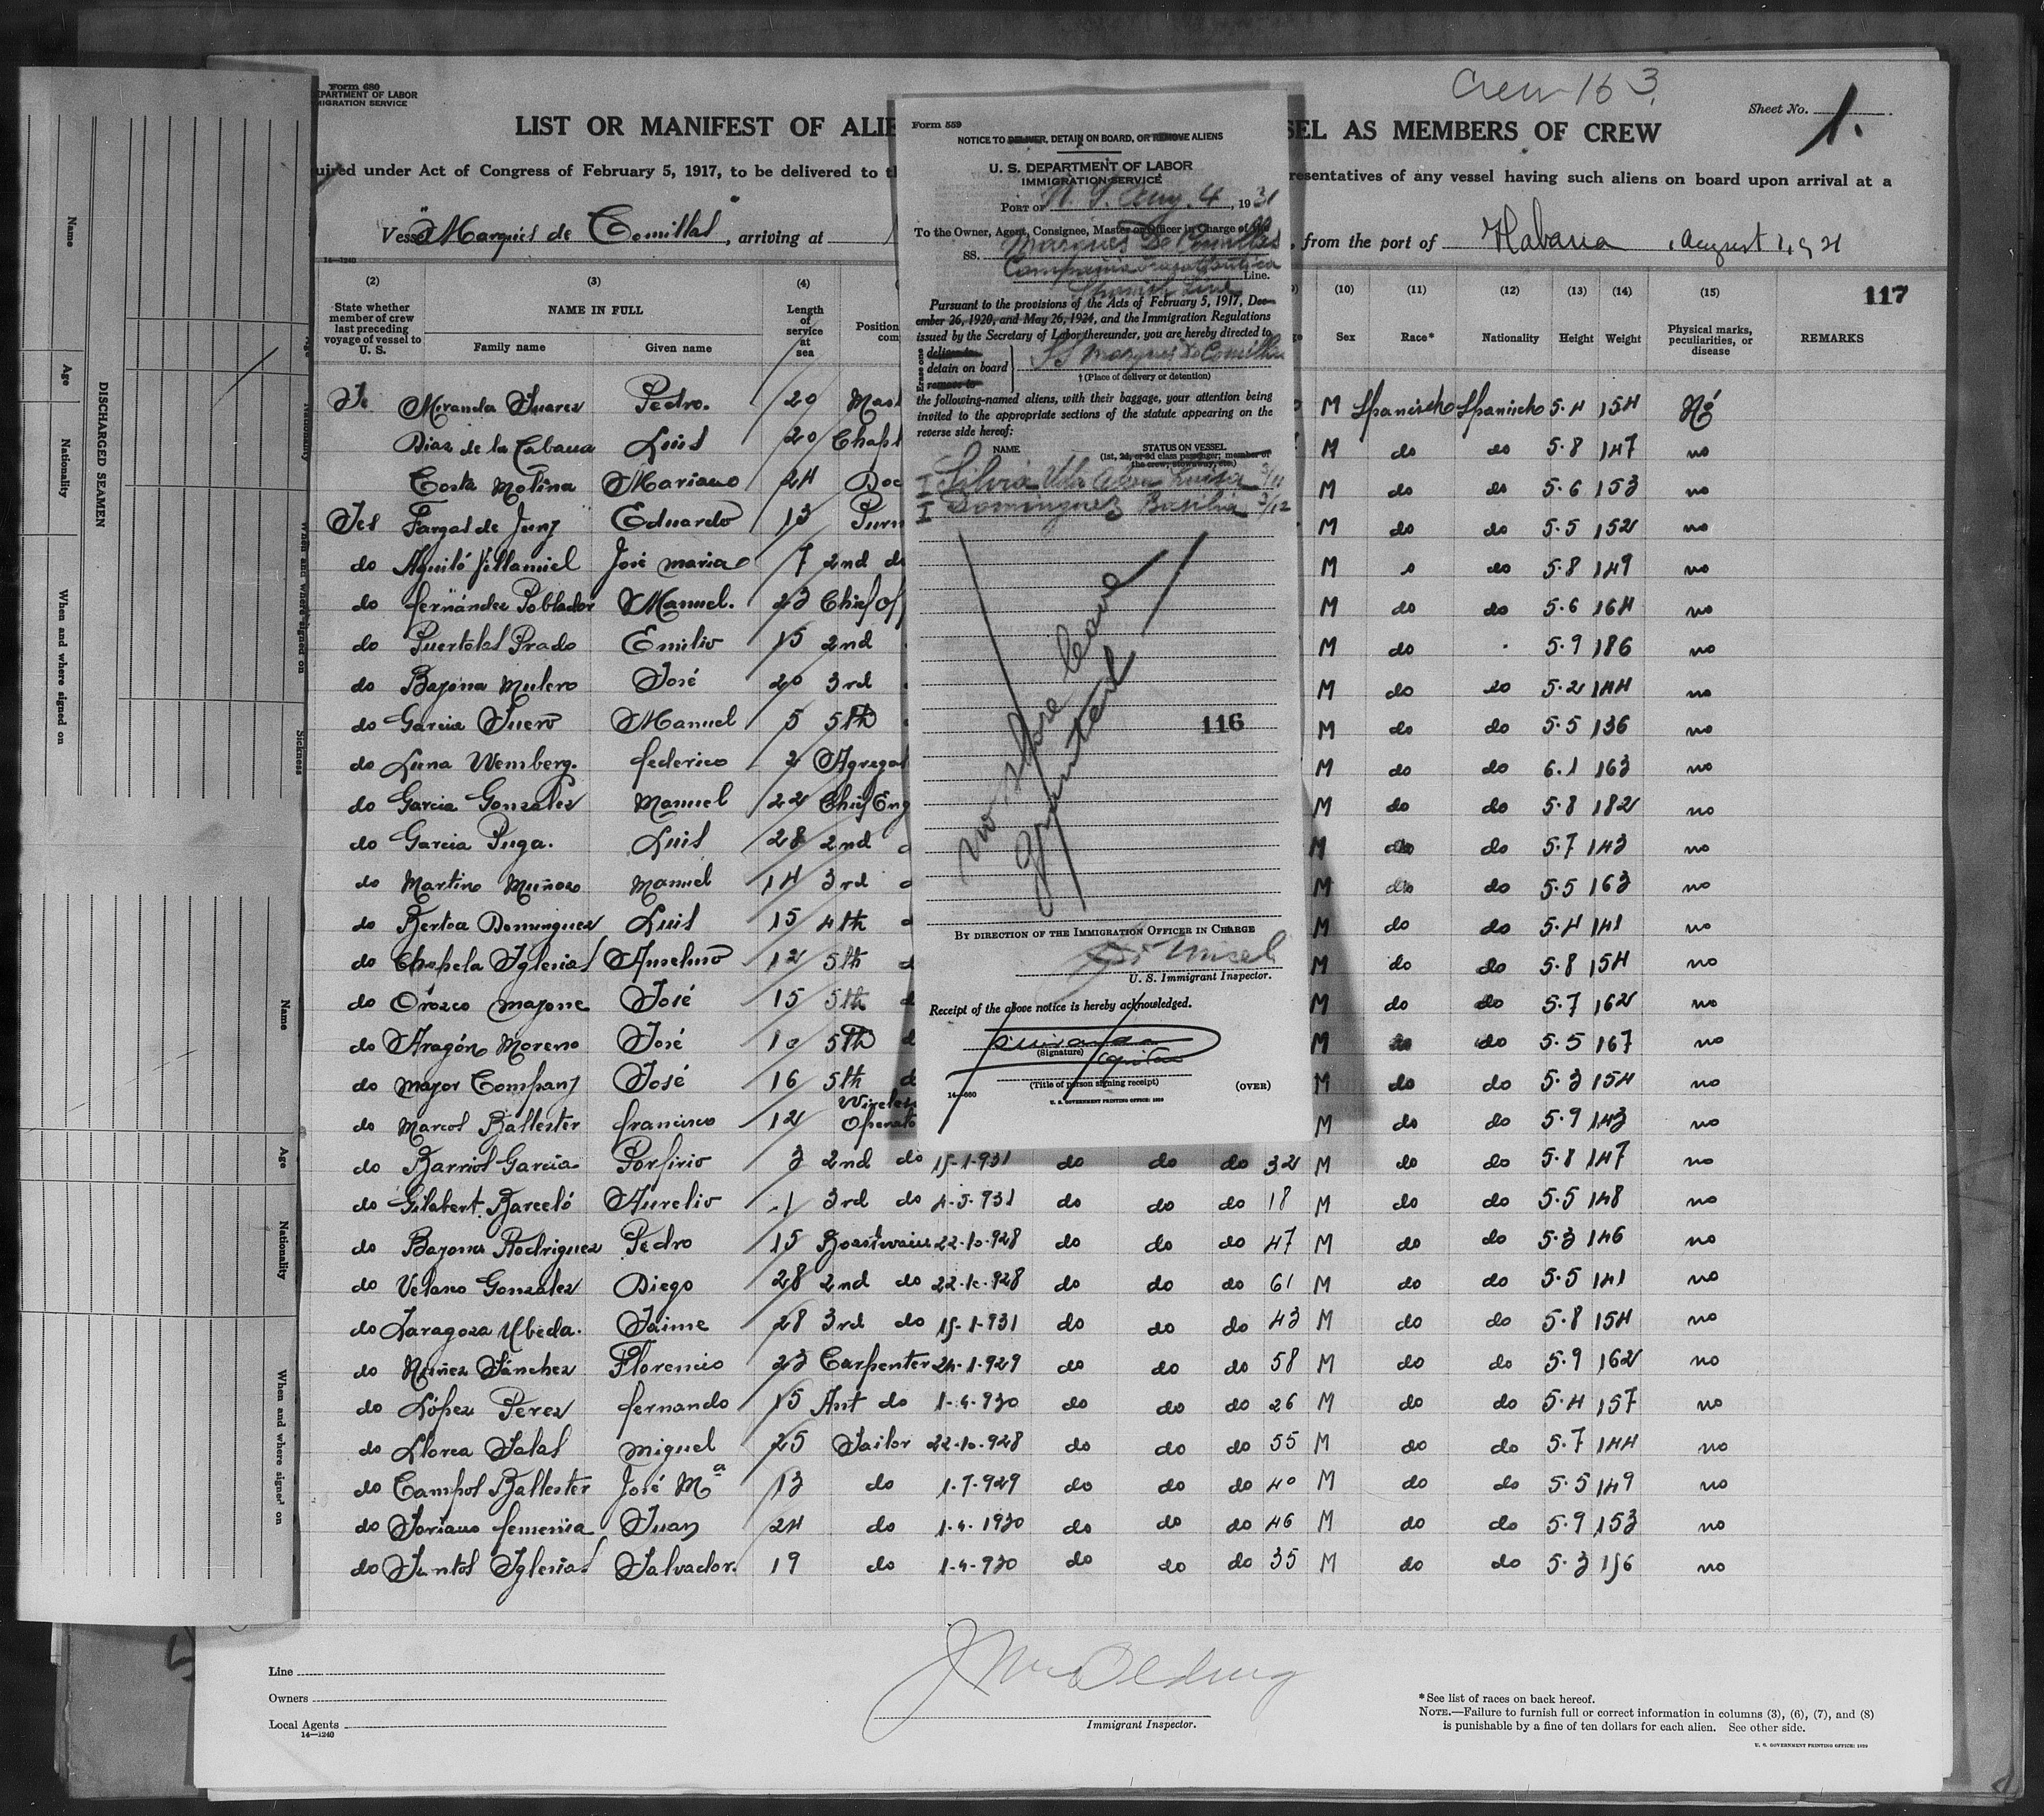 Crew 163
Form 680
DEPARTMENT OF LABOR
IMMIGRATION SERVICE
Sheet No. 1.
LIST OR MANIFEST OF ALIE
SEL AS MEMBERS OF CREW
uired under Act of Congress of February 5, 1917, to be delivered to th
resentatives of any vessel having such aliens on board upon arrival at a
Vessel "Marqués de Comillas", arriving at
, from the port of Habana, August 1, 931
14—1240
(2) (3) (4)
(10) (11) (12) (13) (14) (15)
117
State whether member of crew last preceding voyage of vessel to U. S.
NAME IN FULL
Family name Given name
Length of service at sea
Position
com
Sex Race* Nationality Height Weight Physical marks, peculiarities, or disease REMARKS
Miranda Suarez Pedro. 20 Mast M Spanisch Spanisch 5.4 154 No
Diaz de la Cabana Luis 20 Chapl M do do 5.8 147 no
Costa Molina Mariano 24 Doc M do do 5.6 153 no
Yes Fargas de Juny Eduardo 13 Purs M do do 5.5 152 no
do Aguiló Villamiel José maria 7 2nd do M do 5.8 149 no
do fernández Poblador Manuel. 23 Chief Of M do do 5.6 164 no
do Puertolas Prado Emilio 15 2nd M do 5.9 186 no
do Bayona Mulero José 20 3rd M do do 5.2 144 no
do Garcia Suero Manuel 5 5th M do do 5.5 136 no
do Luna Wemberg. federico 2 Agregad M do do 6.1 163 no
do Garcia Gonzalez Manuel 22 Chief Eng M do do 5.8 182 no
do Garcia Puga. Luis 28 2nd M do do 5.7 143 no
do Martino Muñoz Manuel 14 3rd M do do 5.5 163 no
do Bertoa Dominguez Luis 15 4th M do do 5.4 141 no
do Chapela Iglesias Anselmo 12 5th M do do 5.8 154 no
do Orozco mayone José 15 5th M do do 5.7 162 no
do Aragón Moreno José 10 5th M do do 5.5 167 no
do mayor Company José 16 5th M do do 5.3 154 no
do Marcos Ballester francisco 12 Wireless Operato M do do 5.9 143 no
do Barrios Garcia Porfirio 3 2nd do 15-1-931 do do do 32 M do do 5.8 147 no
do Gilabert Barceló Aurelio 1 3rd do 4-5-931 do do do 18 M do do 5.5 148 no
do Bayona Rodriguez Pedro 15 Boastwain 22-10-928 do do do 47 M do do 5.3 146 no
do Velasco Gonzalez Diego 28 2nd do 22-10-928 do do do 61 M do do 5.5 141 no
do Zaragoza Ubeda. Jaime 28 3rd do 15-1-931 do do do 43 M do do 5.8 154 no
do Nuñez Sánchez Florencio 23 Carpenter 24-1-929 do do do 58 M do do 5.9 162 no
do López Perez fernando 15 Ant do 1-4-930 do do do 26 M do do 5.4 157 no
do Llorca Salas miguel 25 Sailor 22-10-928 do do do 55 M do do 5.7 144 no
do Campos Ballester José Mª 13 do 1-7-929 do do do 40 M do do 5.5 149 no
do Soriano femenia Juan 24 do 1-4-1930 do do do 46 M do do 5.9 153 no
do Santos Iglesias Salvador. 19 do 1-4-930 do do do 35 M do do 5.3 156 no
Line
Owners
Local Agents
14—1240
Immigrant Inspector.
*See list of races on back hereof.
NOTE.—Failure to furnish full or correct information in columns (3), (6), (7), and (8)
is punishable by a fine of ten dollars for each alien. See other side.
U. S. GOVERNMENT PRINTING OFFICE: 1929
Form 559
NOTICE TO DELIVER, DETAIN ON BOARD, OR REMOVE ALIENS
U. S. DEPARTMENT OF LABOR
IMMIGRATION SERVICE
PORT OF N. Y. Aug. 4, 1931
To the Owner, Agent, Consignee, Master or Officer in Charge of the
SS. Marques De Comillas
Compania Trasatlantica
Line.
Spanish Line
Pursuant to the provisions of the Acts of February 5, 1917, Dec-
ember 26, 1920, and May 26, 1924, and the Immigration Regulations
issued by the Secretary of Labor thereunder, you are hereby directed to
Erase one
deliver to
detain on board
remove to
SS Marques De Comillas
† (Place of delivery or detention)
the following-named aliens, with their baggage, your attention being
invited to the appropriate sections of the statute appearing on the
reverse side hereof:
NAME STATUS ON VESSEL
(1st, 2d, or 3d class passenger; member of
the crew, stowaway, etc.)
I Silvia Vda Luisa 3/11
I Dominguez Basilia 3/12
no shore leave
granted
116
BY DIRECTION OF THE IMMIGRATION OFFICER IN CHARGE
U. S. Immigrant Inspector.
Receipt of the above notice is hereby acknowledged.
Miranda
(Signature)
Capitan
(Title of person signing receipt)
14—660
(OVER)
U. S. GOVERNMENT PRINTING OFFICE: 1930
DISCHARGED SEAMEN
Name
Age
Nationality
When and where signed on
Sickness
Name
Age
Nationality
When and where signed on